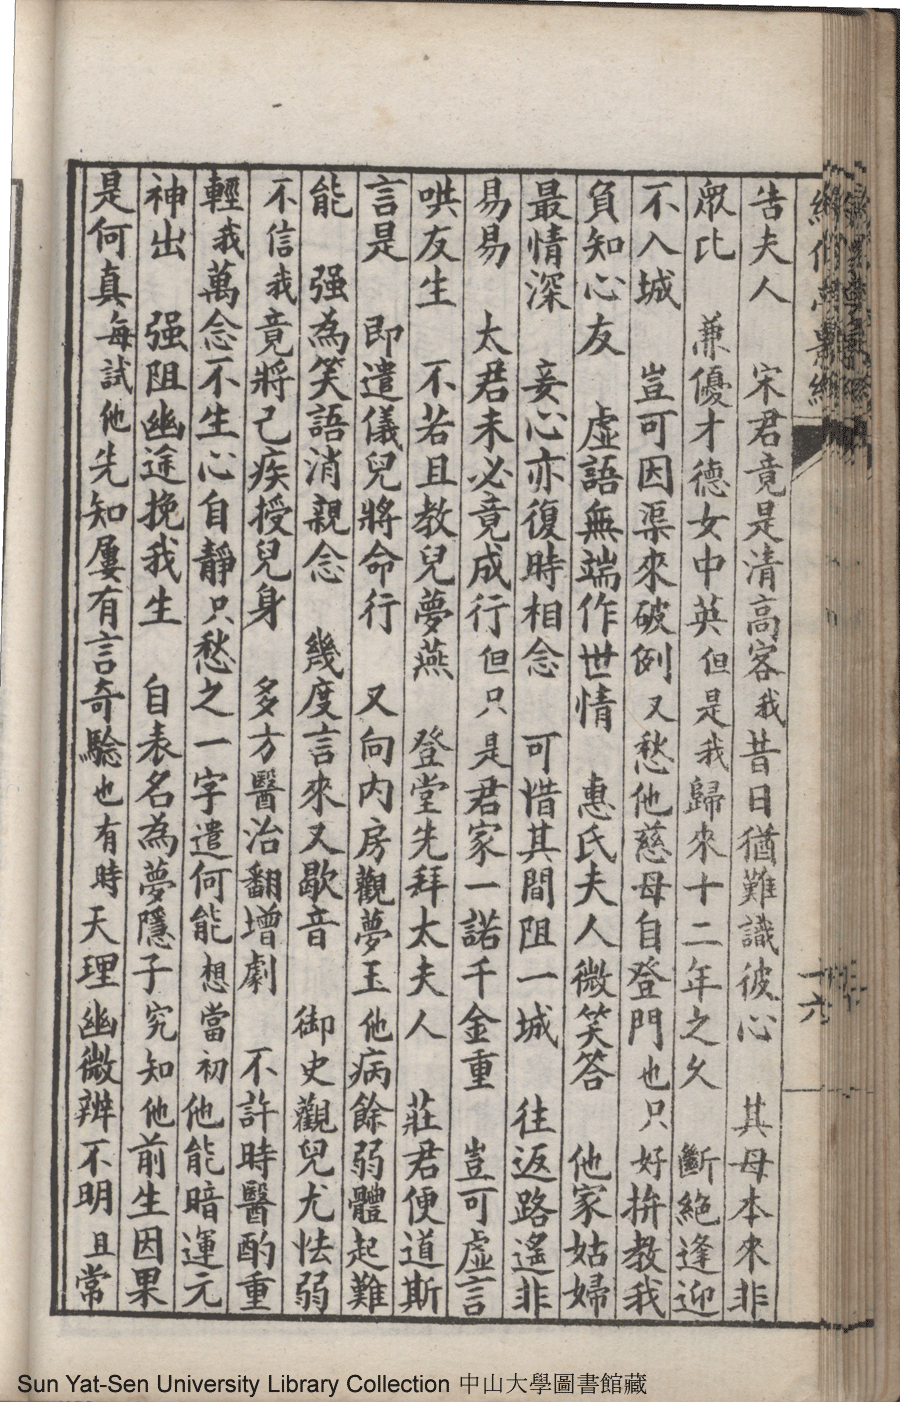 告夫人　宋君竟是清高客我昔日猶難識彼心　其母本來非
眾比　兼優才德女中英但是我歸來十二年之久　斷絕逢迎
不入城　豈可因渠來破例又愁他慈母自登門也只好拚教我
負知心友　虛語無端作世情　惠氏夫人微笑答　他家姑婦
最情深　妾心亦復時相念　可惜其間阻一城　往返路遙非
易易　太君未必竟成行但只是君家一諾千金重　豈可虛言
哄友生　不若且教兒夢燕　登堂先拜太夫人　莊君便道斯
言是　即遣儀兒將命行　又向內房觀夢玉他病餘弱體起難
能　强為笑語消親念　幾度言來又歇音　御史觀兒尤怯弱
不信我竟將己疾授兒身　多方醫治翻增劇　不許時醫酌重
輕我萬念不生心自靜只愁之一字遣何能想當初他能暗運元
神出　强阻幽途挽我生　自表名為夢隱子究知他前生因果
是何真每試他先知屢有言奇驗也有時天理幽微辨不明且常
十六
Sun Yat-Sen University Library Collection 中山大學圖書館藏